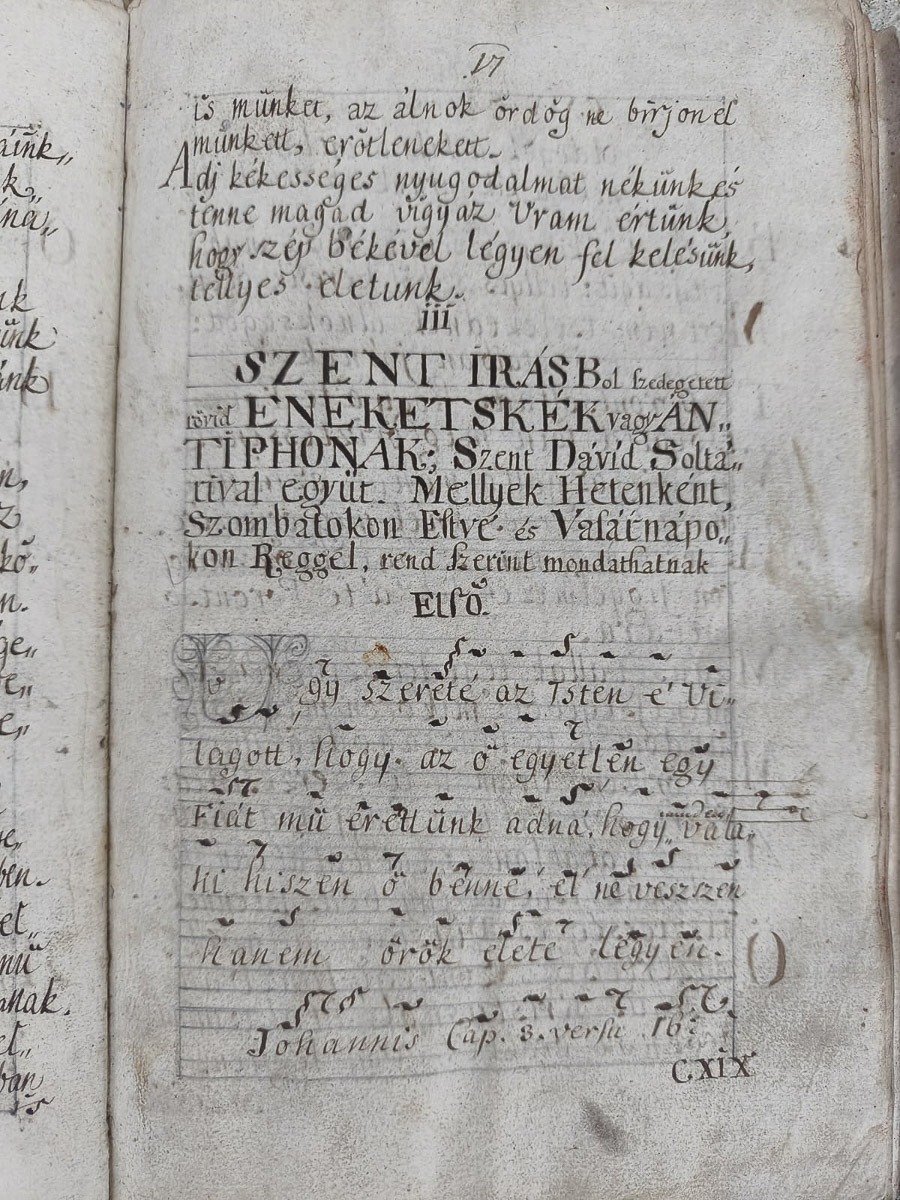 áink„
k„
ína„
nk
ünk
ánk
n,
z
kö„
n.
ge„
e„
e„
e,
ben.
et„
mü
anak.
et„
ban
is
17
is münket, az álnok ördög ne birjon el
münkett, erötlenekett.
Adj kékességes nyugodalmat nékünk és
tenne magad vigyáz Uram értünk,
hogy szép békével légyen fel kelésünk,
tellyes életunk.
iii
SZENT IRÁSBol szedegetett
rövid ENEKETSKÉK vagy ÁN„
TIPHONÁK; Szent Dávid Soltá„
rival együt. Mellyek Hetenként,
Szombatokon Estve és Vasátnápo„
kon Reggel, rend szerint mondathatnak
Elsö.
Ugy szereté az Isten é Vi„
lagott, hogy az ö egyetlen egy
Fiát mü érettünk adná, hogy„ minden vala„
ki hiszen ö benne, el ne vesszen
hanem örök élete légyen.
Johannis Cap. 3. versu 16:
C.XIX